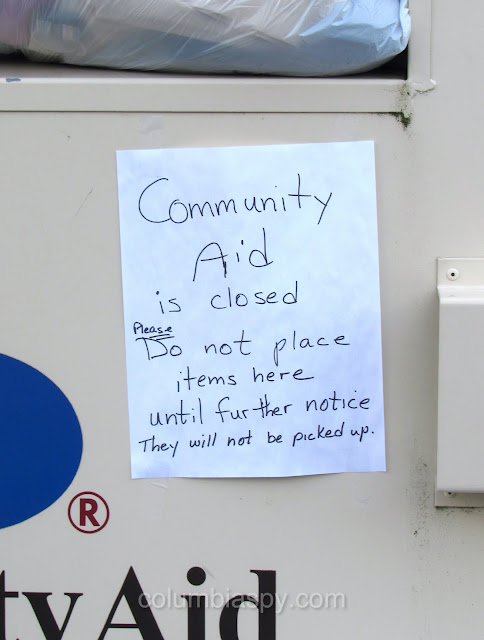 Community
Aid
is closed
Please
Do not place
items here
until further notice
They will not be picked up.
®
tyAid
columbiaspy.com